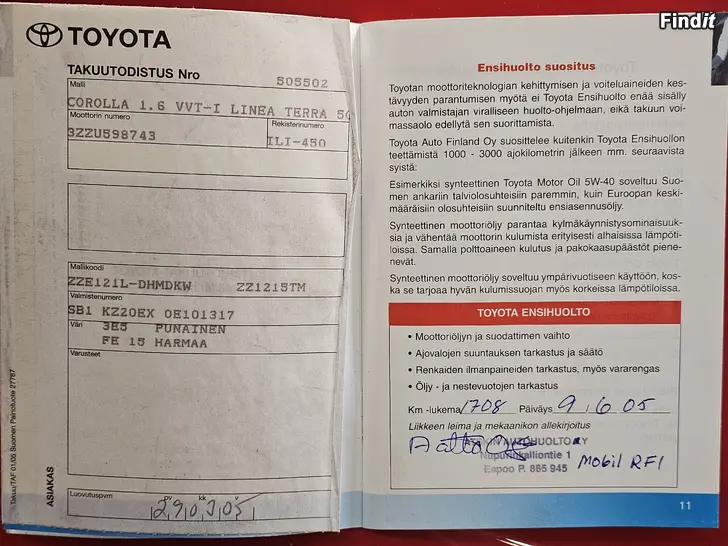 Findit
TOYOTA
TAKUUTODISTUS Nro
505502
Malli
COROLLA 1.6 VVT-I LINEA TERRA
Moottorin numero
3ZZU598743
Rekisterinumero
ILI-450
Mallikoodi
ZZE121L-DHMDKW ZZ1215TM
Valmistenumero
SB1 KZ20EX 0E101317
Väri
3E5 PUNAINEN
FE 15 HARMAA
Varusteet
Luovutuspvm
pv kk v
29 03 05
ASIAKAS
Takuu/TAF 01/05 Suomen Painotuote 27787
Ensihuolto suositus
Toyotan moottoriteknologian kehittymisen ja voiteluaineiden kes-
tävyyden parantumisen myötä ei Toyota Ensihuolto enää sisälly
auton valmistajan viralliseen huolto-ohjelmaan, eikä takuun voi-
massaolo edellytä sen suorittamista.
Toyota Auto Finland Oy suosittelee kuitenkin Toyota Ensihuollon
teettämistä 1000 - 3000 ajokilometrin jälkeen mm. seuraavista
syistä:
Esimerkiksi synteettinen Toyota Motor Oil 5W-40 soveltuu Suo-
men ankariin talviolosuhteisiin paremmin, kuin Euroopan keski-
määräisiin olosuhteisiin suunniteltu ensiasennusöljy.
Synteettinen moottoriöljy parantaa kylmäkäynnistysominaisuuk-
sia ja vähentää moottorin kulumista erityisesti alhaisissa lämpöti-
loissa. Samalla polttoaineen kulutus ja pakokaasupäästöt piene-
nevät.
Synteettinen moottoriöljy soveltuu ympärivuotiseen käyttöön, kos-
ka se tarjoaa hyvän kulumissuojan myös korkeissa lämpötiloissa.
TOYOTA ENSIHUOLTO
• Moottoriöljyn ja suodattimen vaihto
• Ajovalojen suuntauksen tarkastus ja säätö
• Renkaiden ilmanpaineiden tarkastus, myös vararengas
• Öljy - ja nestevuotojen tarkastus
Km -lukema 1708 Päiväys 9.6.05
Liikkeen leima ja mekaanikon allekirjoitus
AUTOHUOLTO KY
Nupurinkalliontie 1
Espoo P. 865 945
Mobil RFI
11